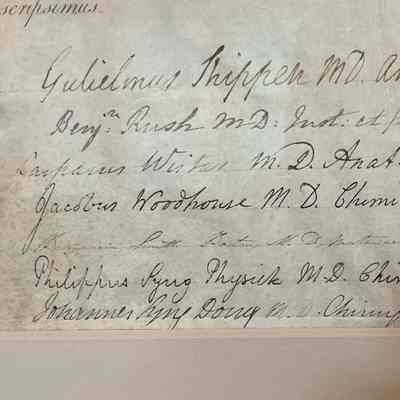 scripsimus.
Gulielmus Shippen M.D. An
Benjn. Rush M.D. Inst. et p
Casparus Wistar M.D. Anat.
Jacobus Woodhouse M.D. Chemi
Smith Barton M.D.
Philippus Syng Physick M.D. Chir
Johannes Syng Dorsey M.D. Chirurg